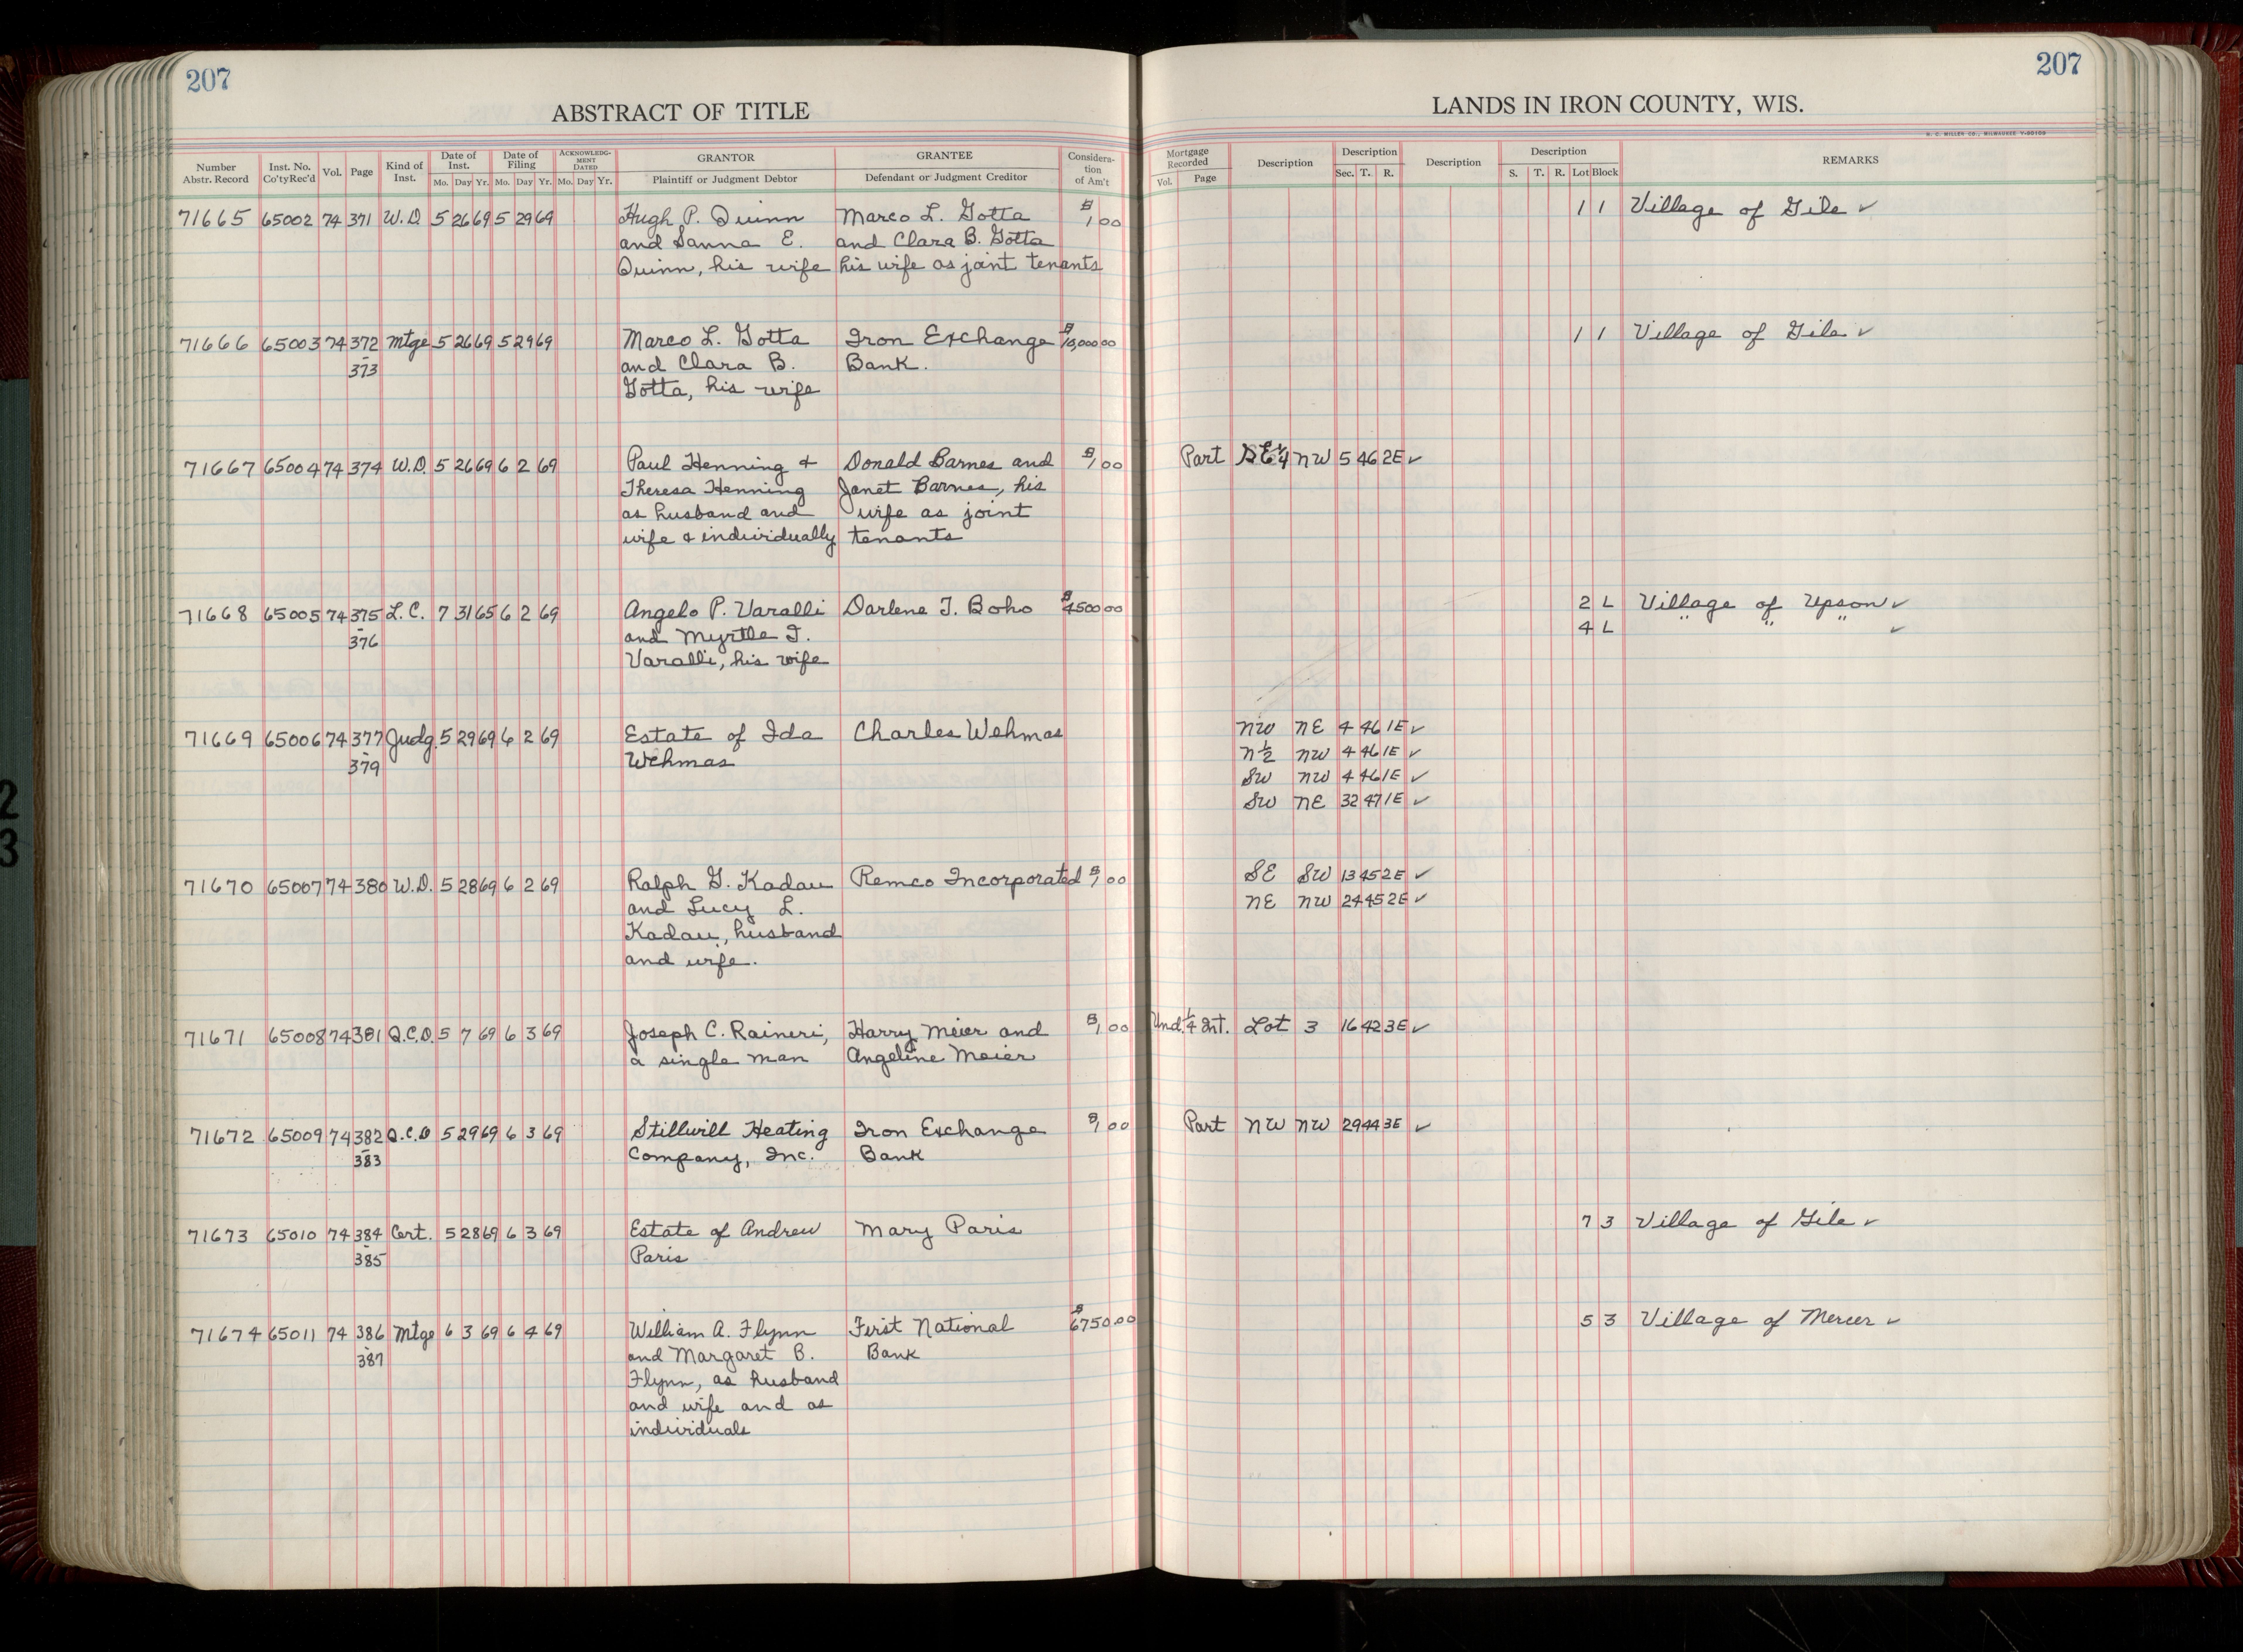 207
ABSTRACT OF TITLE
Number Abstr. Record Inst. No. Co'ty Rec'd Vol. Page Kind of Inst. Date of Inst. Mo. Day Yr. Date of Filing Mo. Day Yr. ACKNOWLEDGMENT DATED Mo. Day Yr. GRANTOR Plaintiff or Judgment Debtor GRANTEE Defendant or Judgment Creditor Consideration of Am't
71665 65002 74 371 W.D. 5 26 69 5 29 69 Hugh P. Quinn Marco L. Gotta $1 00
and Sanna E. and Clara B. Gotta
Quinn, his wife his wife as joint tenants
71666 65003 74 372 Mtge 5 26 69 5 29 69 Marco L. Gotta Iron Exchange $10,000 00
- 373 and Clara B. Bank.
Gotta, his wife
71667 65004 74 374 W.D. 5 26 69 6 2 69 Paul Henning + Donald Barnes and $1 00
Theresa Henning Janet Barnes, his
as husband and wife as joint
wife & individually tenants
71668 65005 74 375 L.C. 7 31 65 6 2 69 Angelo P. Varalli Darlene T. Boho $4500 00
- 376 and Myrtle I.
Varalli, his wife
71669 65006 74 377 Judg. 5 29 69 6 2 69 Estate of Ida Charles Wehmas
- 379 Wehmas
71670 65007 74 380 W.D. 5 28 69 6 2 69 Ralph G. Kadau Remco Incorporated $1 00
and Lucy L.
Kadau, husband
and wife.
71671 65008 74 381 Q.C.D. 5 7 69 6 3 69 Joseph C. Raineri, Harry Meier and $1 00
a single man Angeline Meier
71672 65009 74 382 Q.C.D 5 29 69 6 3 69 Stillwill Heating Iron Exchange $1 00
- 383 Company, Inc. Bank
71673 65010 74 384 Cert. 5 28 69 6 3 69 Estate of Andrew Mary Paris
- 385 Paris
71674 65011 74 386 Mtge 6 3 69 6 4 69 William A. Flynn First National $6750.00
- 387 and Margaret B. Bank
Flynn, as husband
and wife and as
individuals
207
LANDS IN IRON COUNTY, WIS.
H. C. MILLER CO., MILWAUKEE Y-50109
Mortgage Recorded Vol. Page Description Description Sec. T. R. Description Description S. T. R. Lot Block REMARKS
1 1 Village of Gile ✓
1 1 Village of Gile ✓
Part SE¼ NW 5 46 2E ✓
2 L Village of Upson ✓
4 L " " " ✓
NW NE 4 46 1E ✓
N½ NW 4 46 1E ✓
SW NW 4 46 1E ✓
SW NE 32 47 1E ✓
SE SW 13 45 2E ✓
NE NW 24 45 2E ✓
Und. ¼ Int. Lot 3 16 42 3E ✓
Part NW NW 29 44 3E ✓
7 3 Village of Gile ✓
5 3 Village of Mercer ✓
2
3